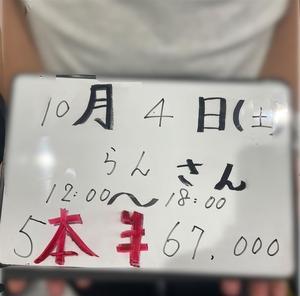 10月4日(土)
らんさん
12:00〜18:00
5本半 67,000